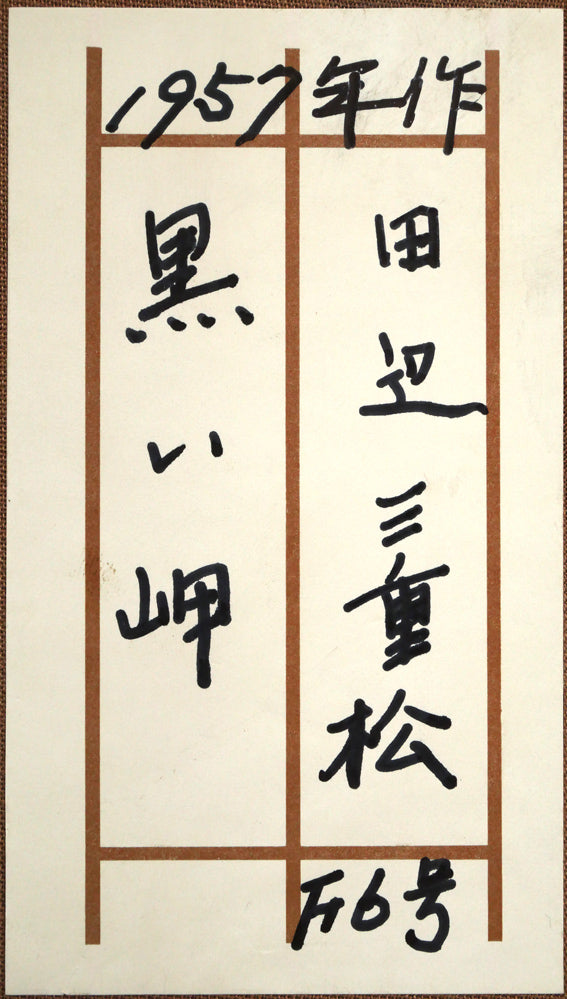 1957年作
田辺三重松
黒い岬
F6号